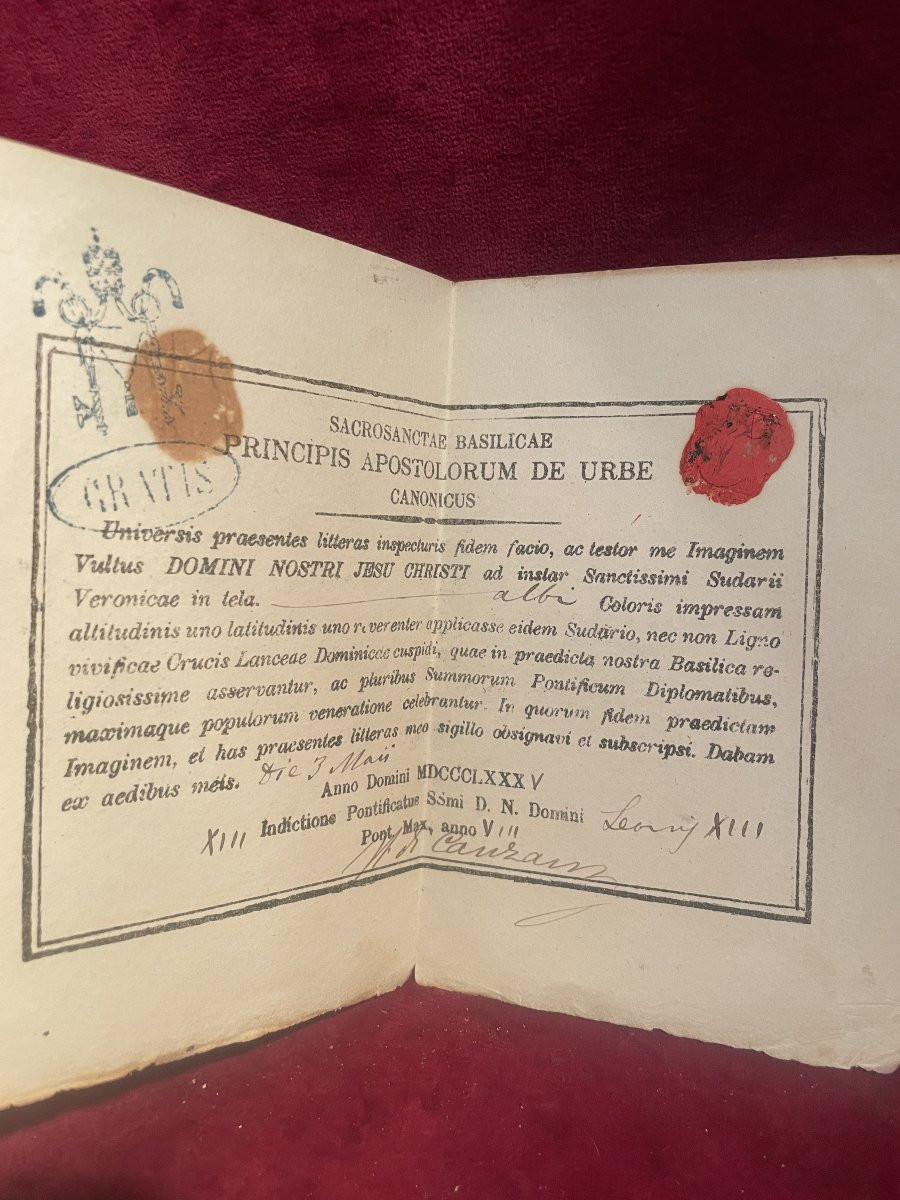 GRATIS
SACROSANCTAE BASILICAE
PRINCIPIS APOSTOLORUM DE URBE
CANONICUS
Universis praesentes litteras inspecturis fidem facio, ac testor me Imaginem
Vultus DOMINI NOSTRI JESU CHRISTI ad instar Sanctissimi Sudarii
Veronicae in tela. albi Coloris impressam
altitudinis uno latitudinis uno reverenter applicasse eidem Sudario, nec non Ligno
vivificae Crucis Lanceae Dominicae cuspidi, quae in praedicta nostra Basilica re-
ligiosissime asservantur, ac pluribus Summorum Pontificum Diplomatibus,
maximaque populorum veneratione celebrantur. In quorum fidem praedictam
Imaginem, et has praesentes litteras meo sigillo obsignavi et subscripsi. Dabam
ex aedibus meis. Die 3 Maii
Anno Domini MDCCCLXXXV
XIII Indictione Pontificatus SSmi D. N. Domini Leonis XIII
Pont. Max, anno VIII